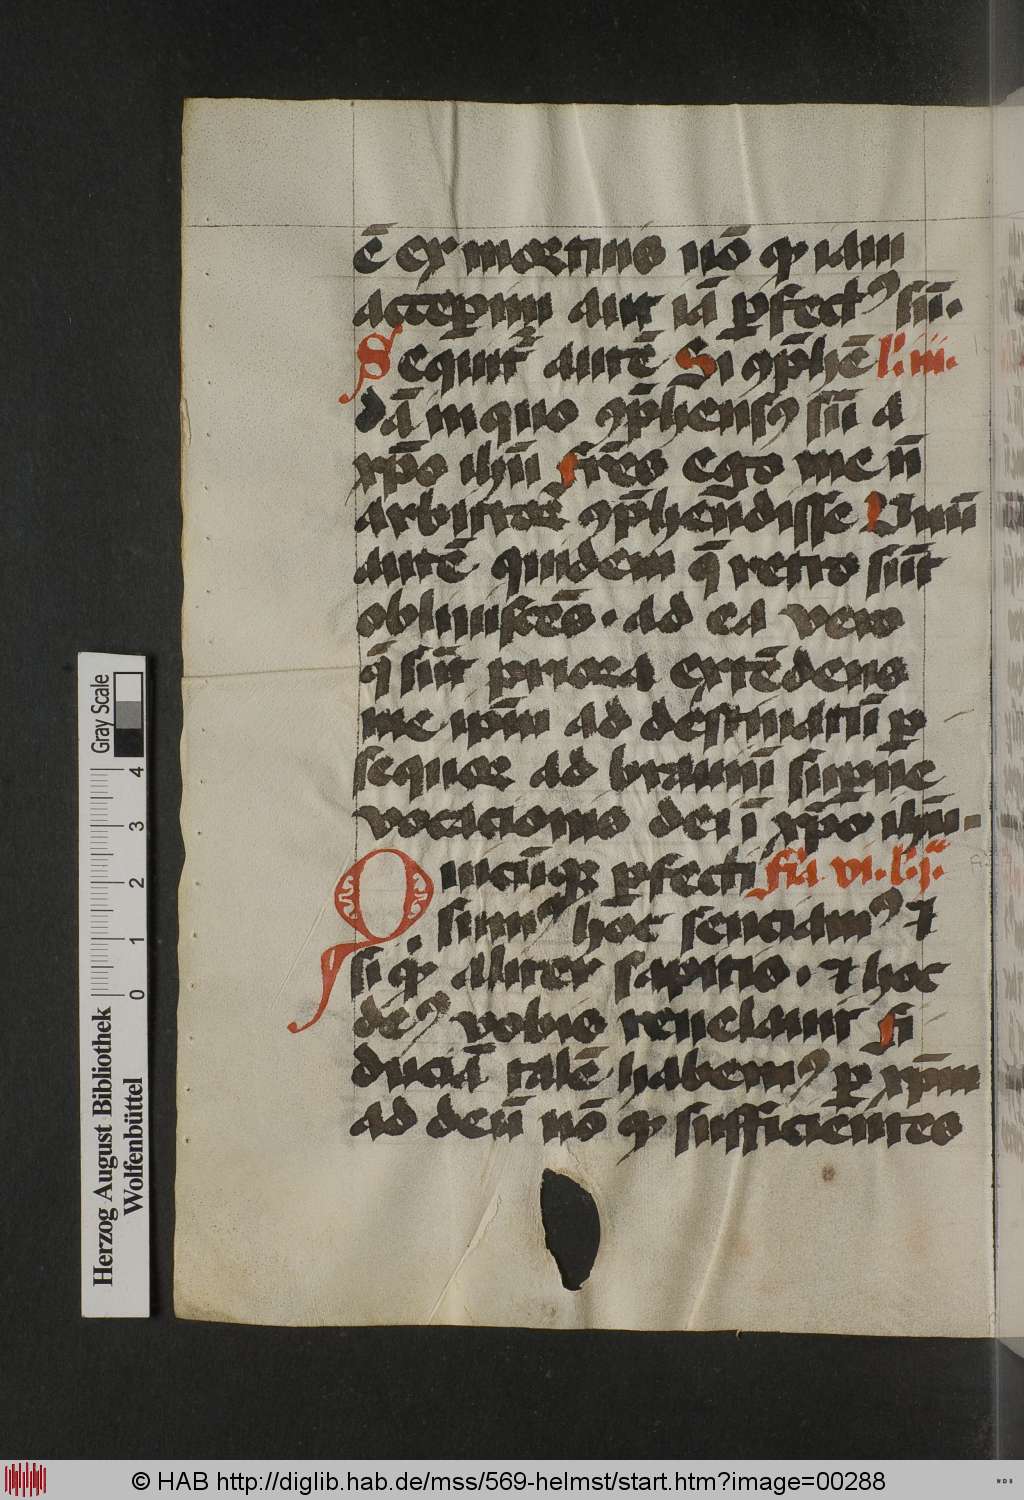 ē ex mortuis nō qꝫ iam
acceperim aut iā ꝑfectꝰ sim̄.
Sequor autē Si ꝯp̄hē l'. iii.
dā in quo ꝯp̄hensꝰ sū a
xp̄o ihū fr̄es ego me n̄
arbitror ꝯp̄hēndisse Vnū
autē quidem q̄ retro sūt
obliuiscēs. ad ea vero
q̄ sūt priora extēdens
me ip̄m ad destinatū ꝑ
sequor ad brauiū suꝑne
vocacionis dei ī xp̄o ihū.
Quicūqꝫ ꝑfecti fr̄a vi. l'. j.
sumꝰ hoc senciamꝰ ⁊
si qͥd aliter sapitis. ⁊ hoc
deꝰ vobis reuelauit fi
duciā talē habemꝰ ꝑ xp̄m
ad deū nō qꝫ sufficientes
Herzog August Bibliothek
Wolfenbüttel
0 1 2 3 4
Gray Scale
© HAB http://diglib.hab.de/mss/569-helmst/start.htm?image=00288